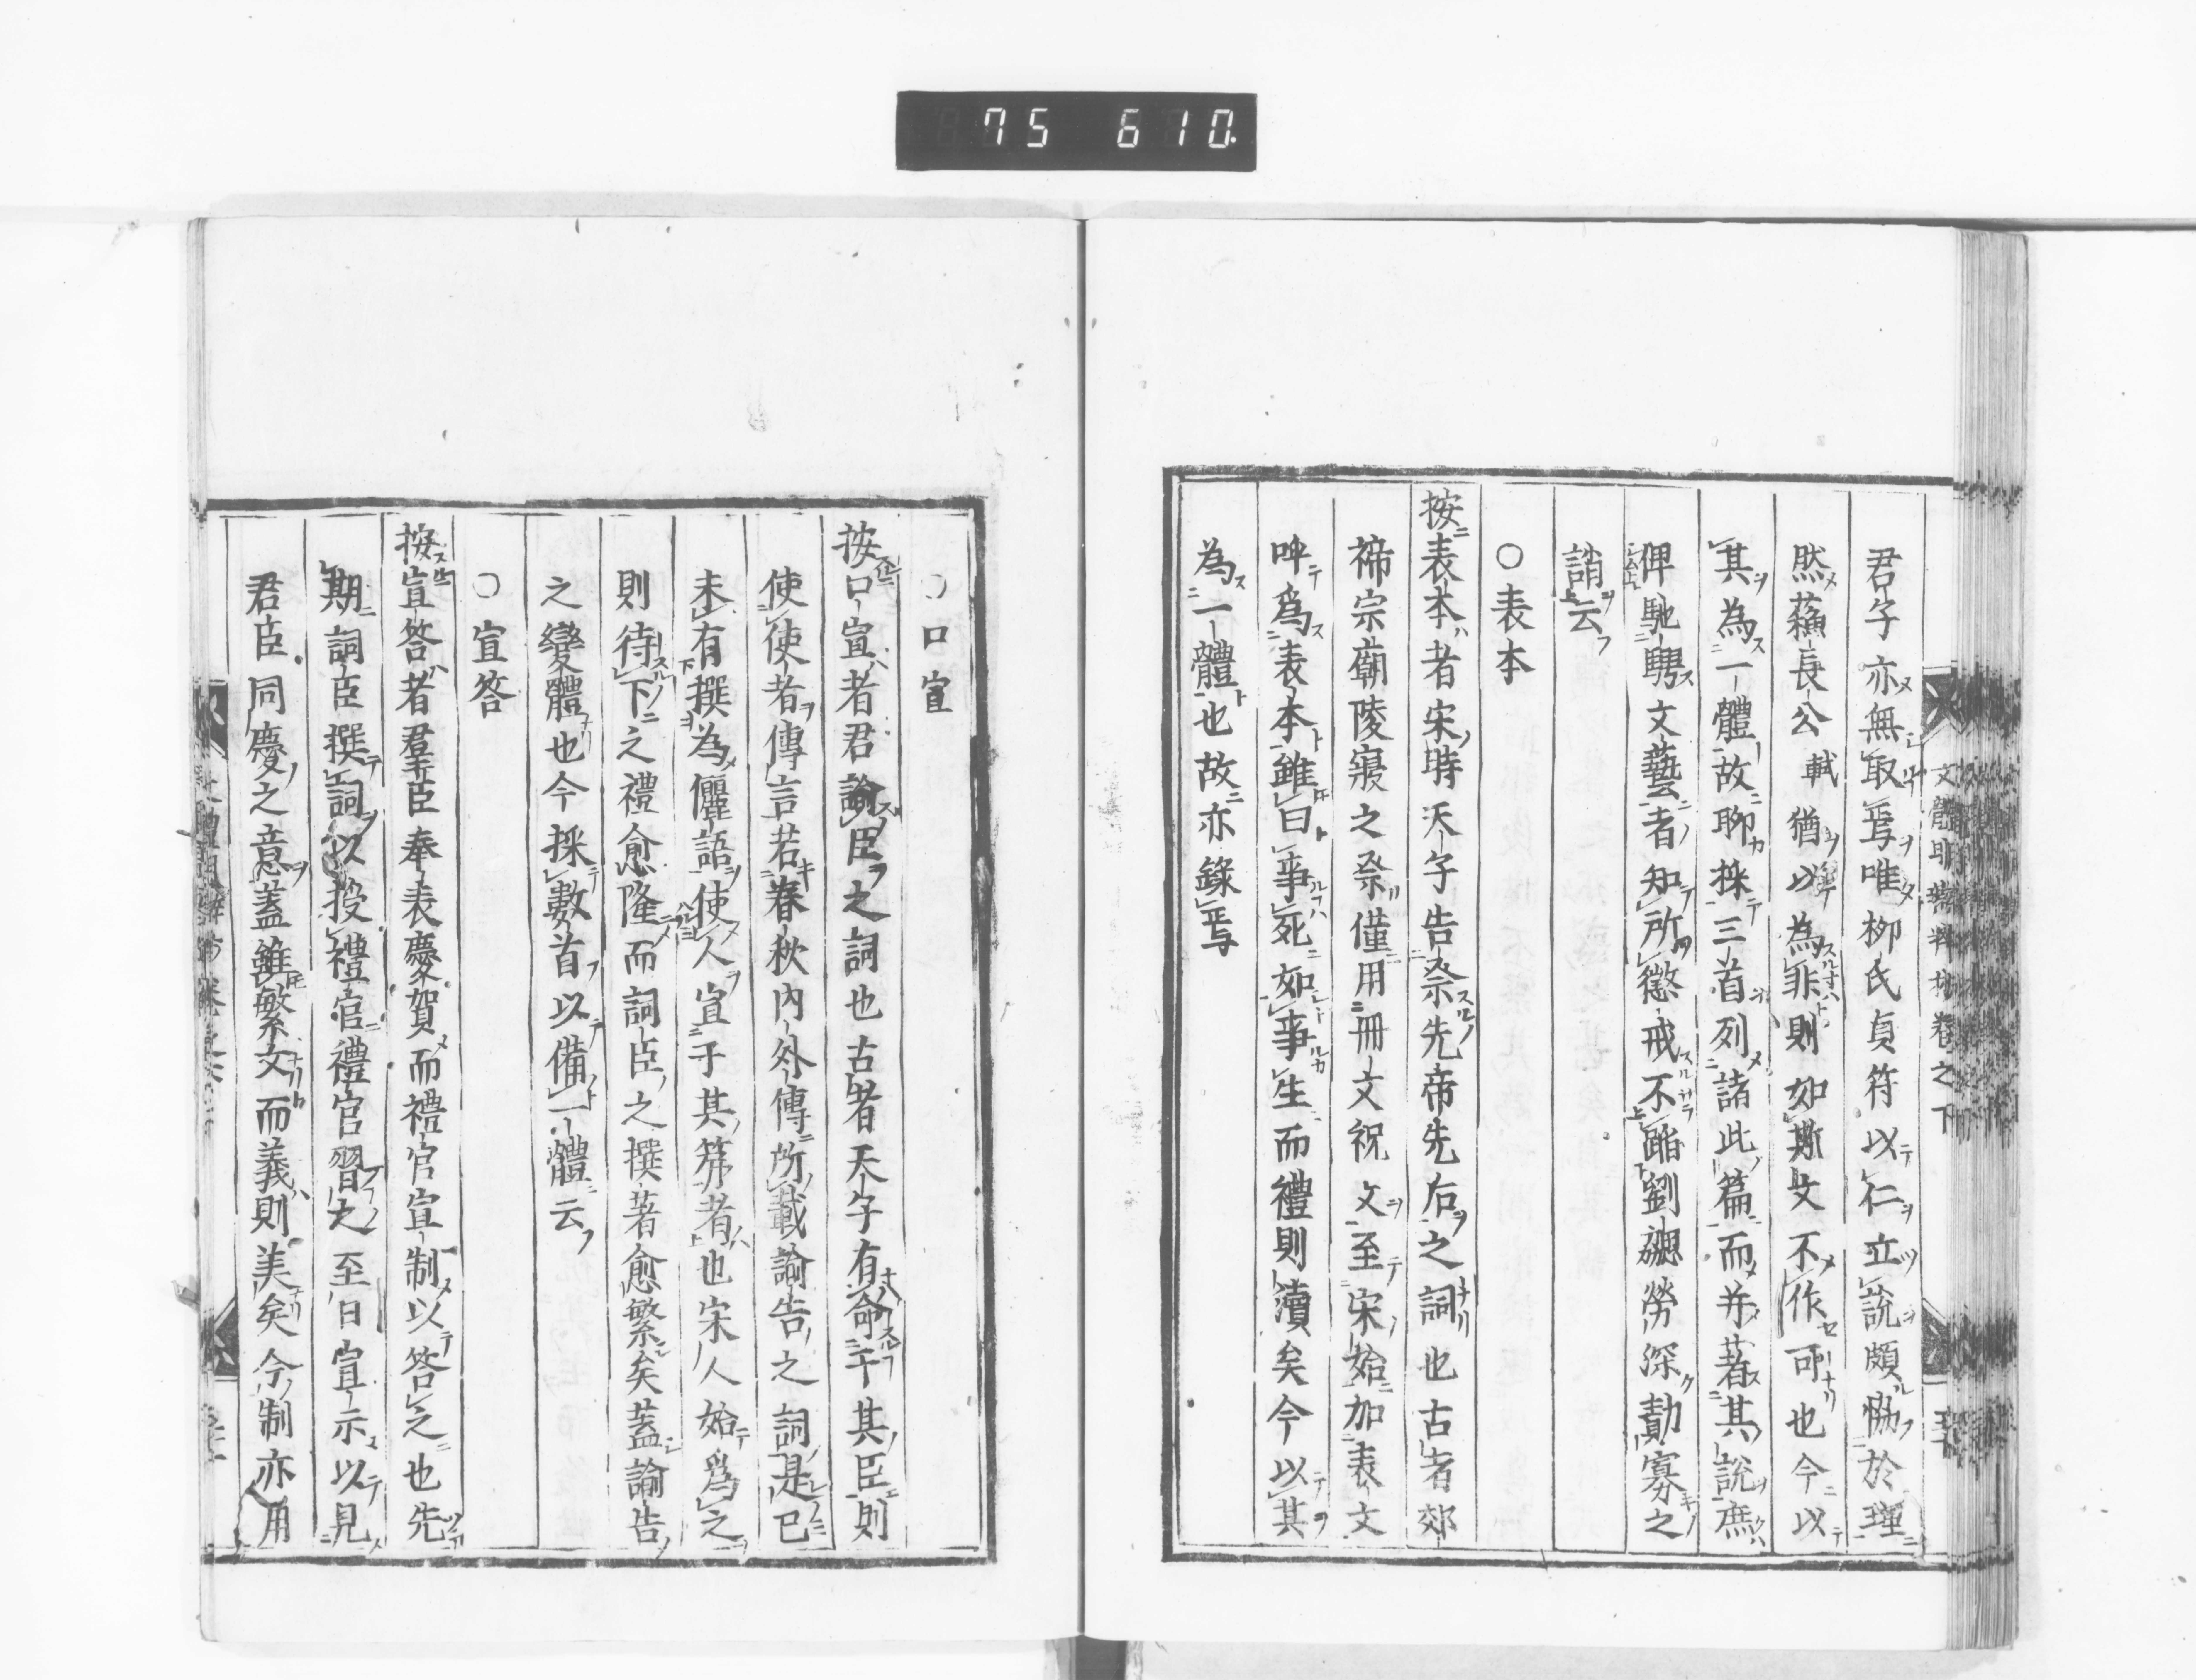 75 610.
君子亦無取焉唯柳氏貞符以仁立說頗協於理
然蘓長公軾猶以為非則如斯文不作可也今以
其為一體故聊採三首列諸此篇而并著其說庶
俾馳騁文藝者知所懲戒不蹈劉勰勞深勣寡之
誚云
○表本
按表本者宋時天子告祭先帝先后之詞也古者郊
禘宗廟陵寢之祭僅用冊文祝文至宋始加表文
呼爲表本雖曰事死如事生而禮則瀆矣今以其
為一體也故亦錄焉
文體明辯粹抄卷之下
○口宣
按口宣者君諭臣之詞也古者天子有命于其臣則
使使者傳言若春秋內外傳所載諭告之詞是已
未有撰為儷語使人宣于其第者也宋人始爲之
則待下之禮愈隆而詞臣之撰著愈繁矣蓋諭告
之變體也今採數首以備一體云
○宣答
按宣答者羣臣奉表慶賀而禮官宣制以答之也先
期詞臣撰詞以授禮官禮官習之至日宣示以見
君臣同慶之意蓋雖繁文而義則美矣今制亦用